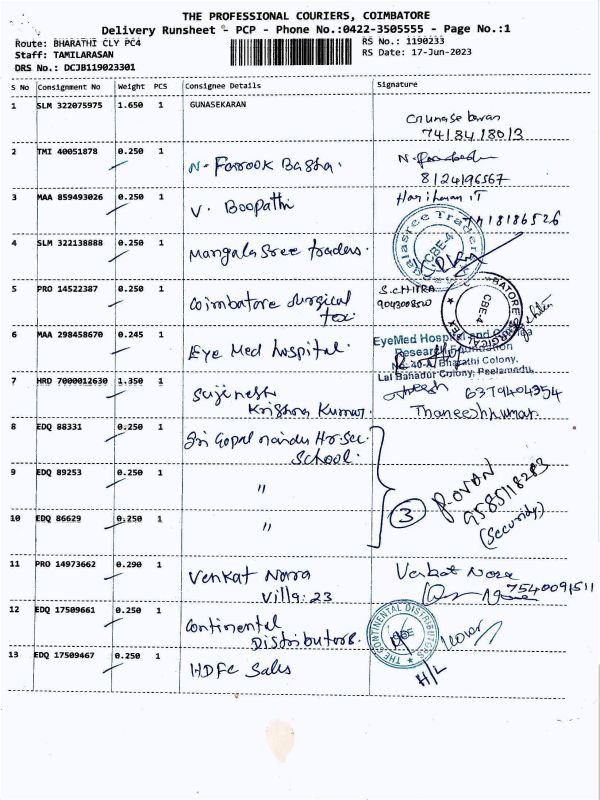 THE PROFESSIONAL COURIERS, COIMBATORE
Delivery Runsheet - PCP - Phone No.:0422-3505555 - Page No.:1
Route: BHARATHI CLY PC4 RS No.: 1190233
Staff: TAMILARASAN RS Date: 17-Jun-2023
DRS No.: DCJB119023301
S No Consignment No Weight PCS Consignee Details Signature
1 SLM 322075975 1.650 1 GUNASEKARAN
Gunasekaran
7418418013
2 TMI 40051878 0.250 1
N. Farook Basha. N.
8124196567
3 MAA 859493026 0.250 1 Hariharan iT
V. Boopathi 7418186526
4 SLM 322138888 0.250 1
Mangala Sree traders. CBE-4
5 PRO 14522387 0.250 1 S.CHITRA
9043008500
Coimbatore Surgical
tex. CBE-4
6 MAA 298458670 0.245 1
Eye Med hospital.
EyeMed Hospital and
Research Foundation
No.40-A, Bharathi Colony,
Lal Bahadur Colony, Peelamedu,
7 HRD 7000012630 1.350 1
6379404354
Krishna Kumar. Thaneeshkumar
8 EDQ 88331 0.250 1
Sri Gopal naidu Hr.Sec.
School.
9 EDQ 89253 0.250 1
"
3
9585118283
(Security)
10 EDQ 86629 0.250 1
"
11 PRO 14973662 0.290 1
Venkat Nora
Villa: 23
7540091511
12 EDQ 17509661 0.250 1
Continental
Distributors.
THE CONTINENTAL DISTRIBUTORS
13 EDQ 17509467 0.250 1
HDFC Sales H/L